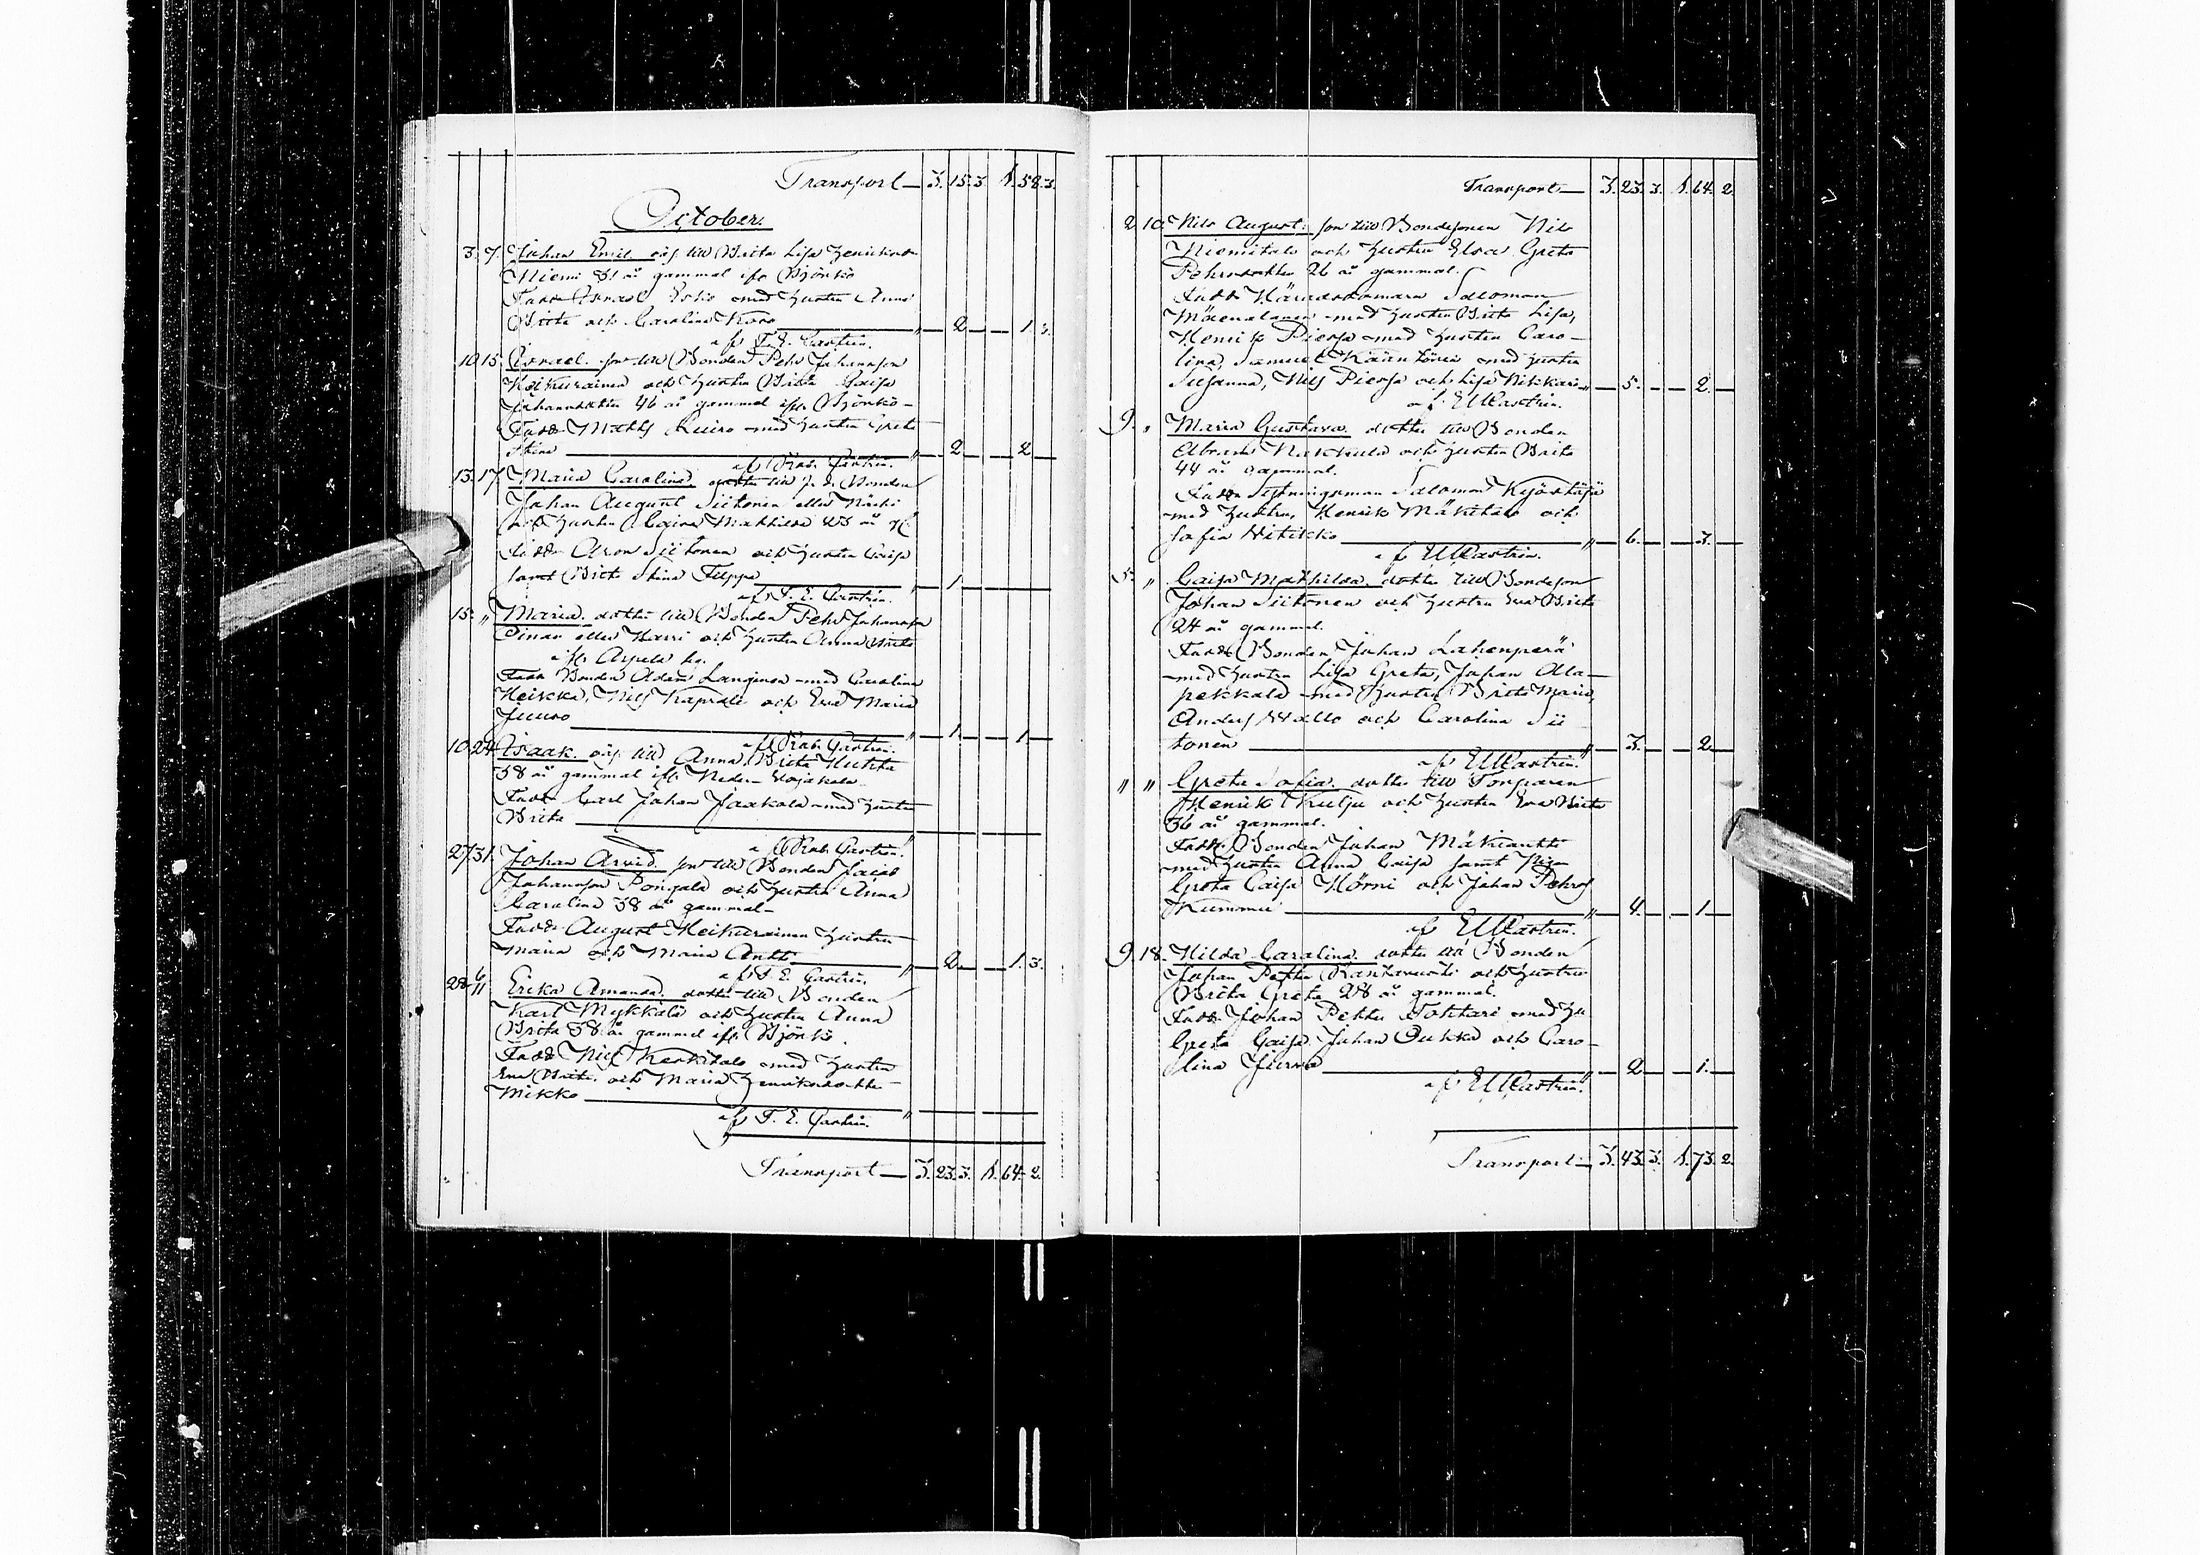 Transport 3. 15. 3. 1. 58. 3.
October.
3. 7. Johan Emil. oäg. till Brita Lisa Henriksd.
Niemi 31 år gammal ifr. Björkö
Fadd. Israel Esko med hustru Anna
Brita och Carolina Koso " 2 1. 3.
af T. E. Castrén.
10. 15. Israel. son till Bonden Pehr Johansson
Heikurainen och hustru Brita Caisa
Johansdotter 46 år gammal ifr. Björkö
Fadd. Matts Ruiro med hustru Greta
Stina " 2 2
af Rob. Castrén.
13. 17. Maria Carolina. dotter till f. d. Bonden
Johan August Siitonen eller Närhi
och hustru Regina Mathilda 23 år gl.
Fadd. Aron Siitonen och hustru Caisa
samt Brita Stina Filppa " 1
af T. E. Castrén.
15. " Maria. dotter till Bonden Pehr Johansson
Oinas eller Harri och hustru Anna Brita
ifr. Arpela by.
Fadd. Bonden AdamЛанginen med Carolina
Heikka, Nils Kaprali och Eva Maria
Juuso " 1 1
af Rob. Castrén.
10. 24. Isaak. oäg. till Anna Brita Hukka
38 år gammal ifr. Neder-Vojakala
Fadd. Carl Johan Jaakola med hustru
Brita "
af Rob. Castrén.
27. 31. Johan Arvid. son till Bonden Jacob
Johansson Poikela och hustru Anna
Carolina 38 år gammal
Fadd. August Heikurainen hustru
Maria och Maria Antti " 2 1. 3.
af T. E. Castrén.
28. 6/11 Erika Amanda. dotter till Bonden
Karl Mykkälä och hustru Anna
Brita 38 år gammal ifr. Björkö.
Fadd. Nils Keskitalo med hustru
Eva Brita och Maria Henriksdotter
Mikko "
af T. E. Castrén.
Transport 3. 23. 3. 1. 64. 2.
Transport 3. 23. 3. 1. 64. 2
2. 10. Nils August. son till Bondesonen Nils
Niemitalo och hustru Elsa Greta
Pehrsdotter 26 år gammal.
Fadd. Häradsdomaren Salomon
Mäenalanen med hustru Brita Lisa,
Henrik Piersa med hustru Caro-
lina, Samuel Kääntönen med hustru
Susanna, Nils Piersa och Lisa Nikkari " 5. 2.
af E. W. Castrén.
9. " Maria Gustava. dotter till Bonden
Abram Nakkula och hustru Brita
44 år gammal.
Fadd. Sextningsman Salomon Kyöstäjä
med hustru, Henrik Mäkitalo och
Sofia Hitikko " 6. 3.
af E. W. Castrén.
5. " Caisa Mathilda. dotter till Bondeson
Johan Siitonen och hustru Eva Brita
24 år gammal.
Fadd. Bonden Johan Lahenperä
med hustru Lisa Greta, Johan Ala-
pekkala med hustru Brita Maria,
Anders Wallo och Carolina Sii-
tonen " 3. 2
af E. W. Castrén.
" " Greta Sofia. dotter till Torparen
Henrik Kulju och hustru Eva Brita
36 år gammal.
Fadd. Bonden Johan Mäkiantti
med hustru Anna Caisa samt Pigan
Greta Caisa Hörni och Johan Pehrs
Kummu " 4. 1
af E. W. Castrén.
9. 18. Hilda Carolina. dotter till Bonden
Johan Petter Rantavuori och hustru
Brita Greta 28 år gammal.
Fadd. Johan Petter Tokkari med hu
Greta Caisa, Johan Oukka och Caro-
lina Jurva 2 1.
af E. W. Castrén.
Transport 3. 43. 3. 1. 73. 2.